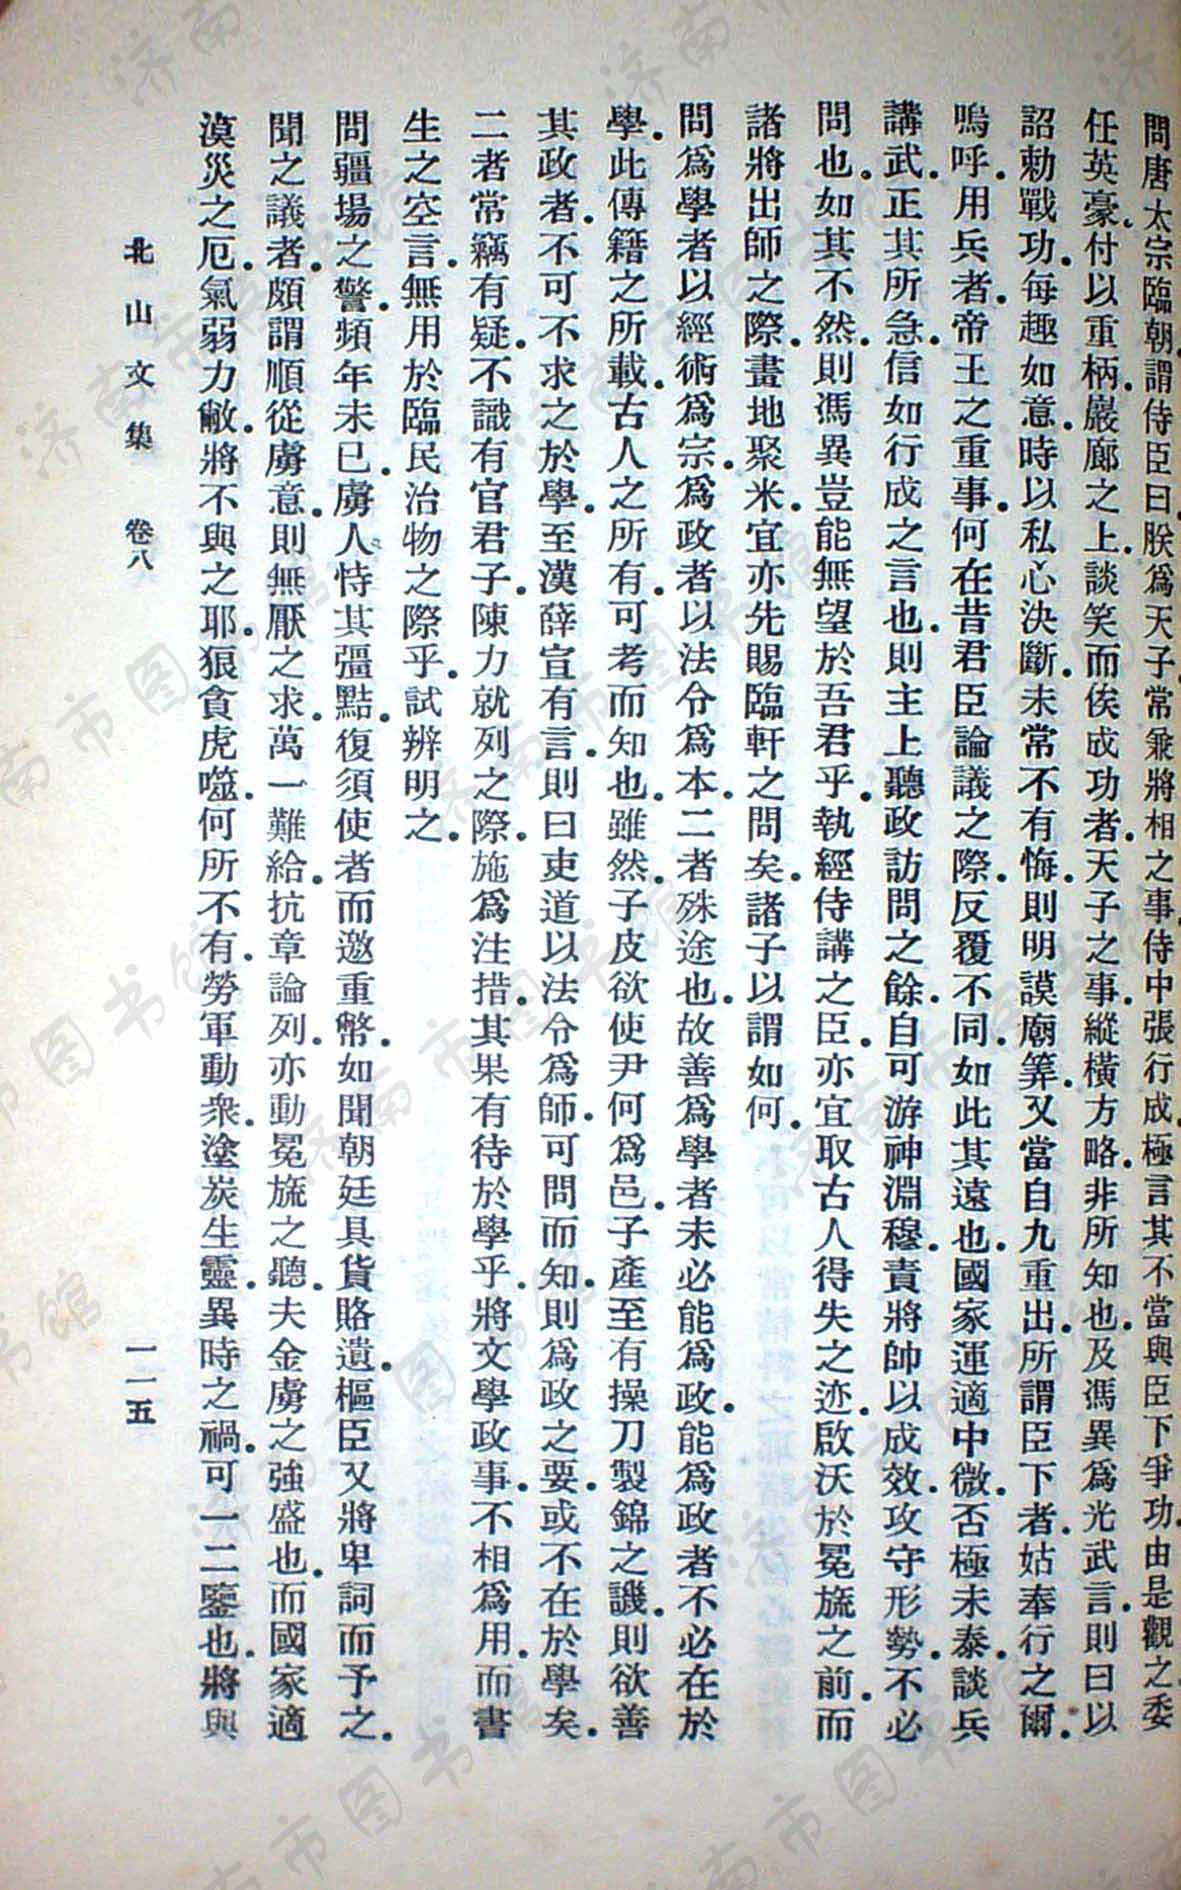 問唐太宗臨朝謂侍臣曰朕爲天子常兼將相之事侍中張行成極言其不當與臣下爭功由是觀之委
任英豪付以重柄巖廊之上談笑而俟成功者天子之事縱橫方略非所知也及馮異爲光武言則曰以
詔勅戰功每趣如意時以私心決斷未常不有悔則明謨廟筭又當自九重出所謂臣下者姑奉行之爾
嗚呼用兵者帝王之重事何在昔君臣論議之際反覆不同如此其遠也國家運適中微否極未泰談兵
講武正其所急信如行成之言也則主上聽政訪問之餘自可游神淵穆責將帥以成效攻守形勢不必
問也如其不然則馮異豈能無望於吾君乎執經侍講之臣亦宜取古人得失之迹啟沃於冕旒之前而
諸將出師之際畫地聚米宜亦先賜臨軒之問矣諸子以謂如何
問爲學者以經術爲宗爲政者以法令爲本二者殊途也故善爲學者未必能爲政能爲政者不必在於
學此傳籍之所載古人之所有可考而知也雖然子皮欲使尹何爲邑子產至有操刀製錦之譏則欲善
其政者不可不求之於學至漢薛宣有言則曰吏道以法令爲師可問而知則爲政之要或不在於學矣
二者常竊有疑不識有官君子陳力就列之際施爲注措其果有待於學乎將文學政事不相爲用而書
生之空言無用於臨民治物之際乎試辨明之
問疆場之警頻年未已虜人恃其彊黠復須使者而邀重幣如聞朝廷具貨賂遺樞臣又將卑詞而予之
聞之議者頗謂順從虜意則無厭之求萬一難給抗章論列亦動冕旒之聽夫金虜之強盛也而國家適
漠災之厄氣弱力敝將不與之耶狠貪虎噬何所不有勞軍動衆塗炭生靈異時之禍可一二鑒也將與
北山文集 卷八 一一五
济南市图书馆